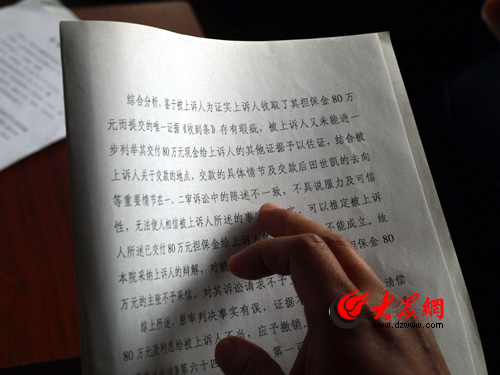 综合分析，鉴于被上诉人为证实上诉人收取了其担保金80万
元而提交的唯一证据《收到条》存有瑕疵，被上诉人又未能进一
步列举其交付80万元现金给上诉人的其他证据予以佐证，结合被
上诉人关于交款的地点、交款的具体情节及交款后田世凯的去向
等重要情节在一、二审诉讼中的陈述不一致，不具说服力及可信
性，无法使人相信被上诉人所述的事
可以推定被上诉
人所述已交付80万元担保金给上诉人
不能成立。故
本院采纳上诉人的辩解，对被
担保金80
万元的主张不予采信，对其诉讼请求不予
综上所述，原审判决事实有误，证据不
清偿
80万元及利息给被上诉人不当，应予撤销。
第六十四
第一百
大众網
www.dzwww.com